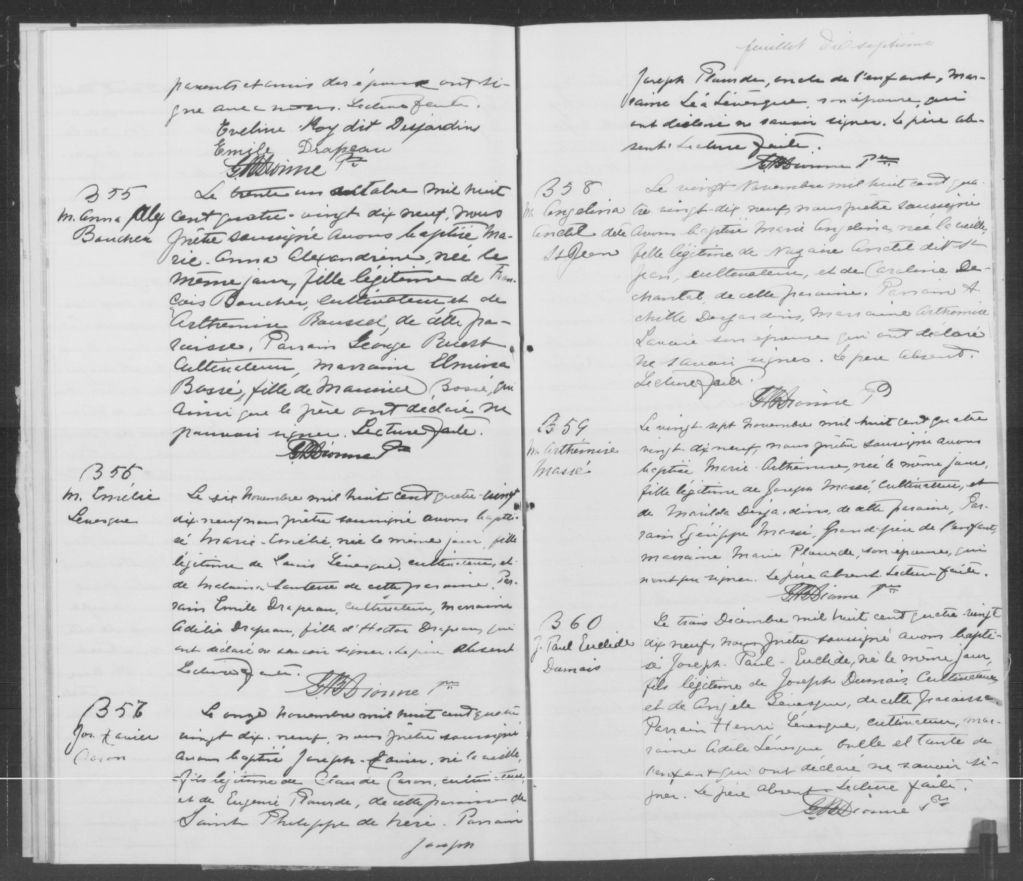 parents et amis des époux ont si-
gné avec nous. Lecture faite.
Eveline Roy dit Desjardin
Emile Drapeau
Dionne Ptre
B 55
M. Anna Alex
Boucher
Le trente un octobre mil huit
cent quatre-vingt dix neuf, nous
prêtre soussigné avons baptisé Ma-
rie-Anna Alexandrine, née le
même jour, fille légitime de Fran-
çois Boucher, cultivateur et de
Arthémise Roussel, de cette pa-
roisse. Parrain George
cultivateur, marraine Elmina
Bossé, fille de Maurice Bossé, qui
ainsi que le père ont déclaré ne
pouvoir signer. Lecture faite.
Dionne Ptre
B 56
M. Emélie
Levesque
Le six Novembre mil huit cent quatre-vingt
dix neuf nous prêtre soussigné avons bapti-
sé Marie-Emélie, née le même jour, fille
légitime de Louis Lévesque, cultivateur, et
de de cette paroisse. Par-
rain Emile Drapeau, cultivateur, marraine
Adélia Drapeau, fille d'Hector Drapeau, qui
ont déclaré ne savoir signer. Le père absent
Lecture faite.
Dionne Ptre
B 57
Jos. Xavier
Caron
Le onze Novembre mil huit cent quatre
vingt dix-neuf, nous prêtre soussigné
avons baptisé Joseph-Xavier, né la veille,
fils légitime de Claude Caron, cultivateur,
et de Eugenie Plourde, de cette paroisse de
Saint Philippe de Néri. Parrain
Joseph
feuillet dix septième
Joseph Plourde, oncle de l'enfant, mar-
raine Léa Lévesque, son épouse, qui
ont déclaré ne savoir signer. Le père ab-
sent. Lecture faite.
Dionne Ptre
B 58
M. Angelina
Anctil dit
St Jean
Le vingt Novembre mil huit cent qua-
tre vingt-dix neuf, nous prêtre soussigné
avons baptisé Marie Angelina, née la veille,
fille légitime de Nazaire Anctil dit St
Jean, cultivateur, et de Caroline De-
chantal, de cette paroisse. Parrain A-
chille Desjardins, marraine Arthémise
Lavoie son épouse qui ont déclaré
ne savoir signer. Le père absent.
Lecture faite.
Dionne P
B 59
M. Arthémise
Massé
Le vingt sept Novembre mil huit cent quatre
vingt dix neuf, nous prêtre soussigné avons
baptisé Marie-Arthémise, née le même jour,
fille légitime de Joseph Massé, cultivateur, et
de Marilda Desjardins, de cette paroisse. Par-
rain Massé, Grand-père de l'enfant,
marraine Marie Plourde, son épouse, qui
n'ont pu signer. Le père absent. Lecture faite.
Dionne Ptre
B 60
J. Paul Euclide
Dumais
Le trois Décembre mil huit cent quatre-vingt
dix neuf, nous prêtre soussigné avons bapti-
sé Joseph-Paul-Euclide, né le même jour,
fils légitime de Joseph Dumais, Cultivateur,
et de Angèle Levesque, de cette paroisse.
Parrain Henri Lévesque, cultivateur, mar-
raine Adele Lévesque et tante de
l'enfant qui ont déclaré ne savoir si-
gner. Le père absent. Lecture faite.
Dionne Ptre